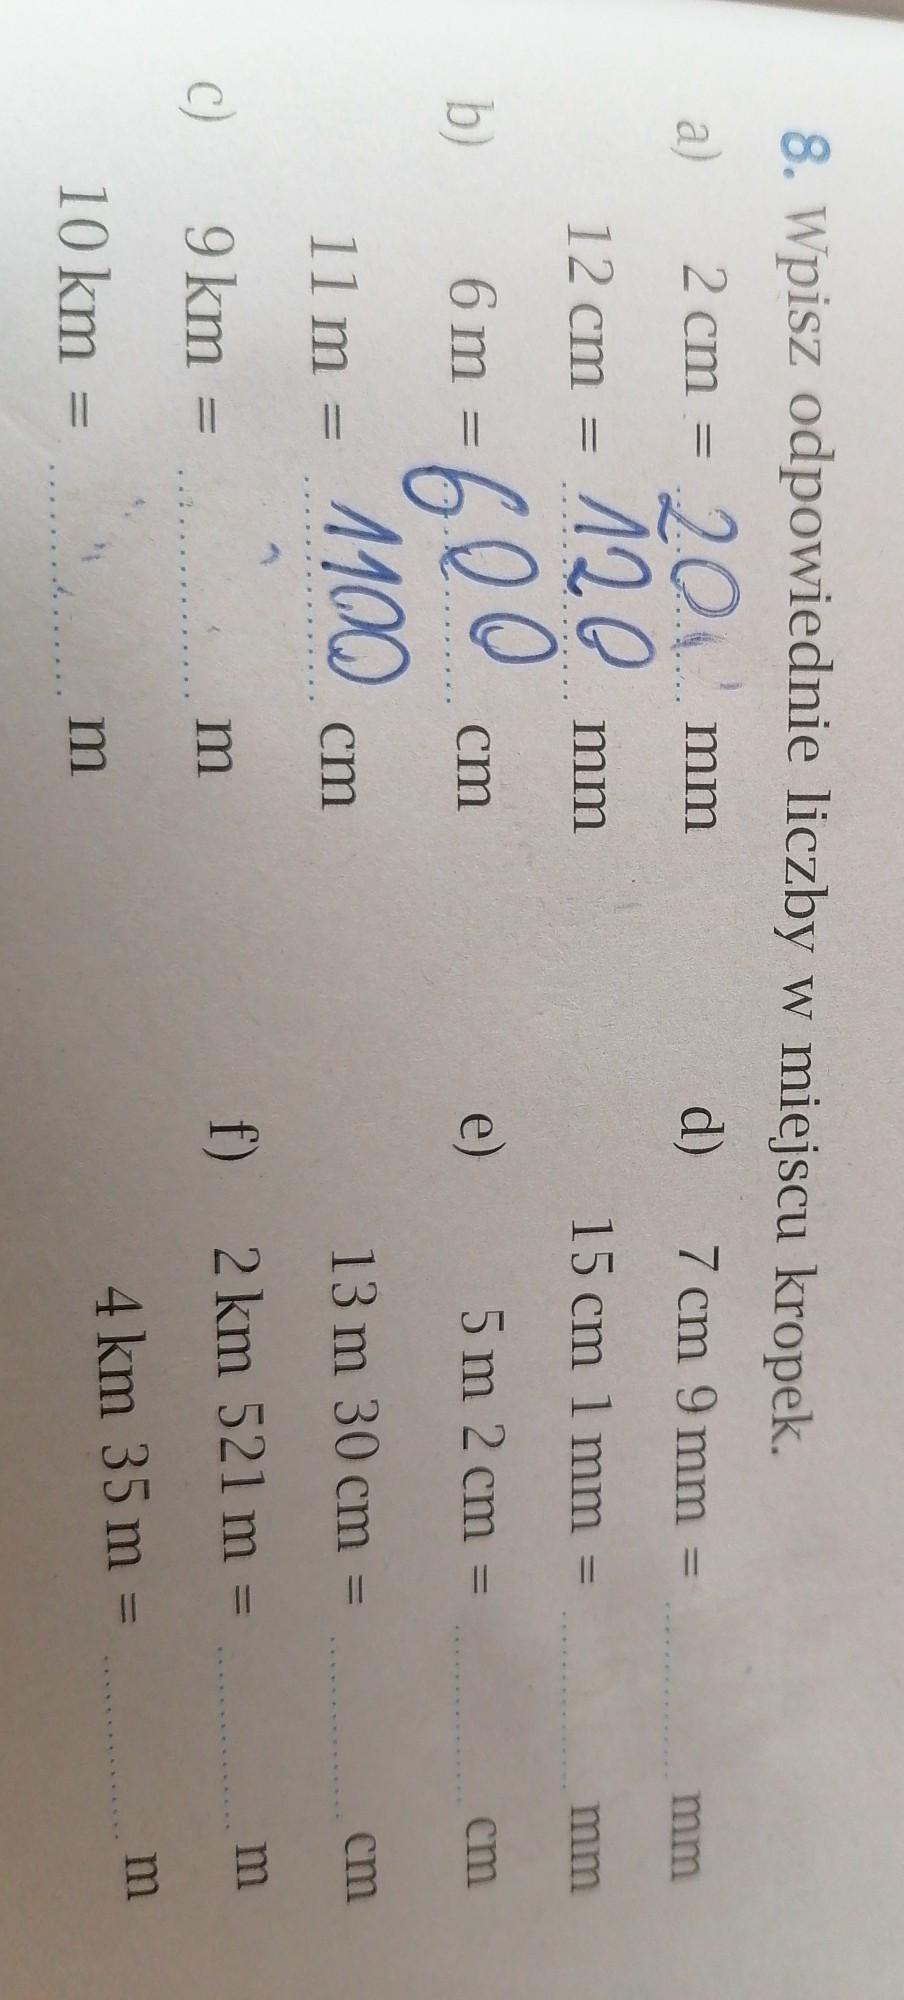 8. Wpisz odpowiednie liczby w miejscu kropek.
a) 2 cm = 20 mm
12 cm = 120 mm
b) 6 m = 600 cm
11 m = 1100 cm
c) 9 km = ............ m
10 km = ............ m
d) 7 cm 9 mm = ............ mm
15 cm 1 mm = ............ mm
e) 5 m 2 cm = ............ cm
13 m 30 cm = ............ cm
f) 2 km 521 m = ............ m
4 km 35 m = ............ m